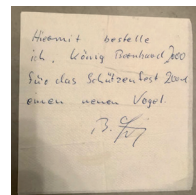 Hiermit bestelle
ich, König Bernhard 2000
für das Schützenfest 2001
einen neuen Vogel.